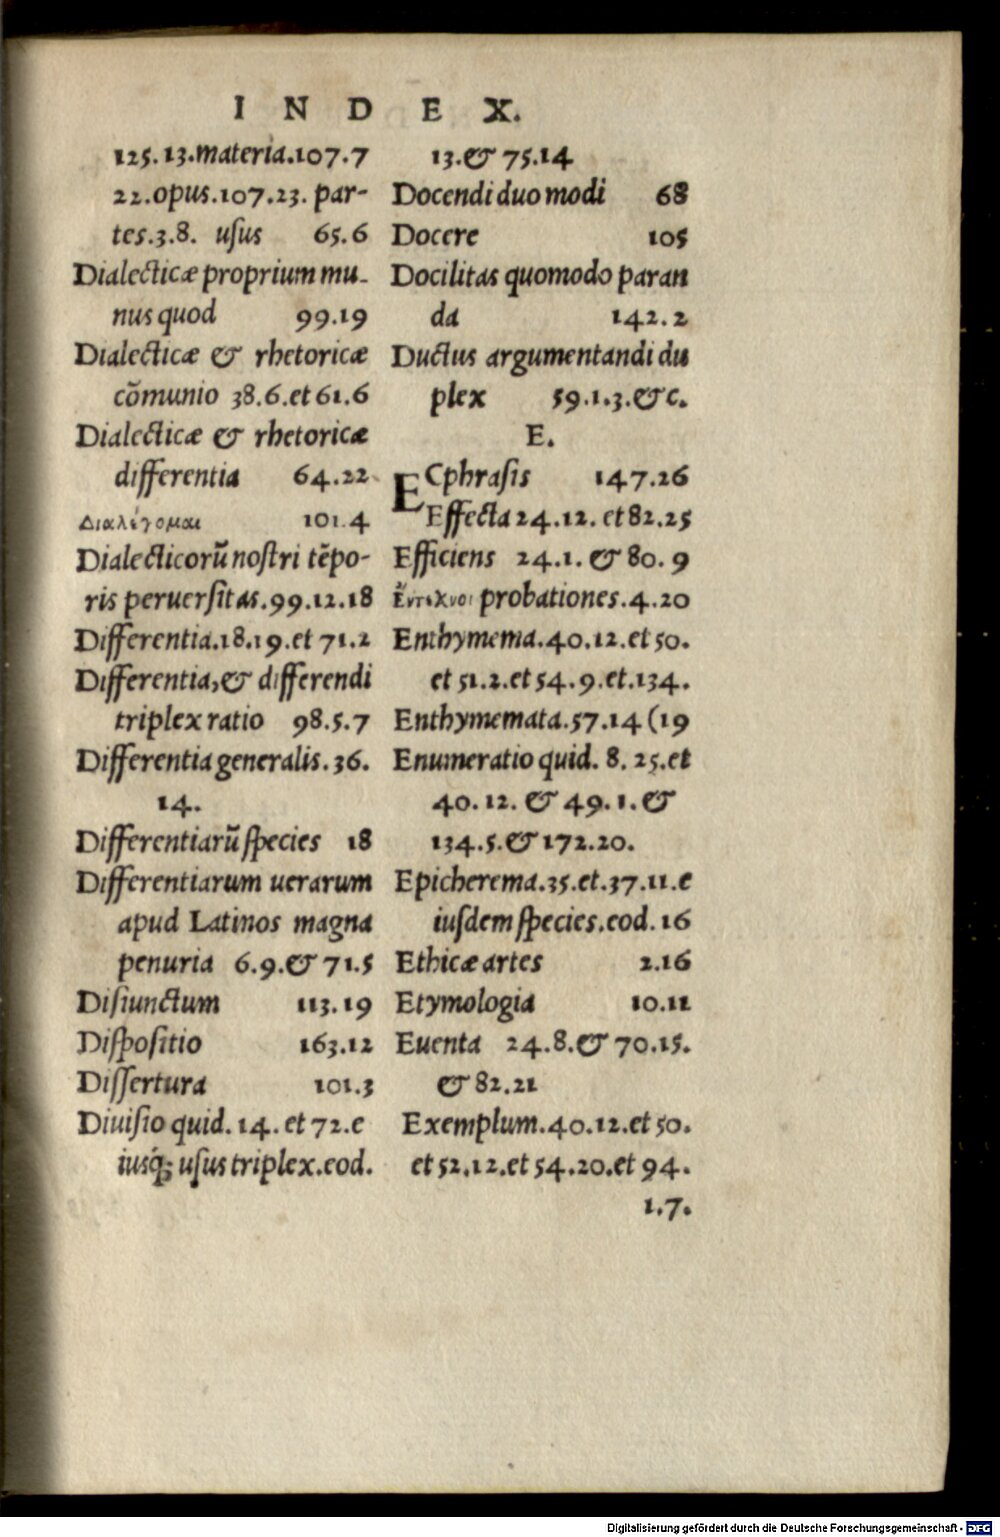 INDEX.
125.13.materia.107.7
22.opus.107.23. par-
tes.3.8. uſus 65.6
Dialecticæ proprium mu-
nus quod 99.19
Dialecticæ & rhetoricæ
cõmunio 38.6.et 61.6
Dialecticæ & rhetoricæ
differentia 64.22
Διαλέγομαι 101.4
Dialecticorũ noſtri tẽpo-
ris peruerſitas.99.12.18
Differentia.18.19.et 71.2
Differentia,& differendi
triplex ratio 98.5.7
Differentia generalis.36.
14.
Differentiarũ ſpecies 18
Differentiarum uerarum
apud Latinos magna
penuria 6.9.& 71.5
Diſiunctum 113.19
Diſpoſitio 163.12
Diſſertura 101.3
Diuiſio quid.14. et 72.e
iusq́; uſus triplex.eod.
13.& 75.14
Docendi duo modi 68
Docere 105
Docilitas quomodo paran
da 142.2
Ductus argumentandi du
plex 59.1.3.&c.
E.
ECphraſis 147.26
Effecta 24.12. et 82.25
Efficiens 24.1. & 80. 9
Ἔντεχνοι probationes.4.20
Enthymema.40.12.et 50.
et 51.2.et 54.9.et.134.
Enthymemata.57.14 (19
Enumeratio quid. 8. 25.et
40.12. & 49.1. &
134.5.& 172.20.
Epicherema.35.et.37.11.e
iuſdem ſpecies.eod.16
Ethicæ artes 2.16
Etymologia 10.11
Euenta 24.8.& 70.15.
& 82.21
Exemplum.40.12.et 50.
et 52.12.et 54.20.et 94.
1.7.
Digitalisierung gefördert durch die Deutsche Forschungsgemeinschaft - DFG